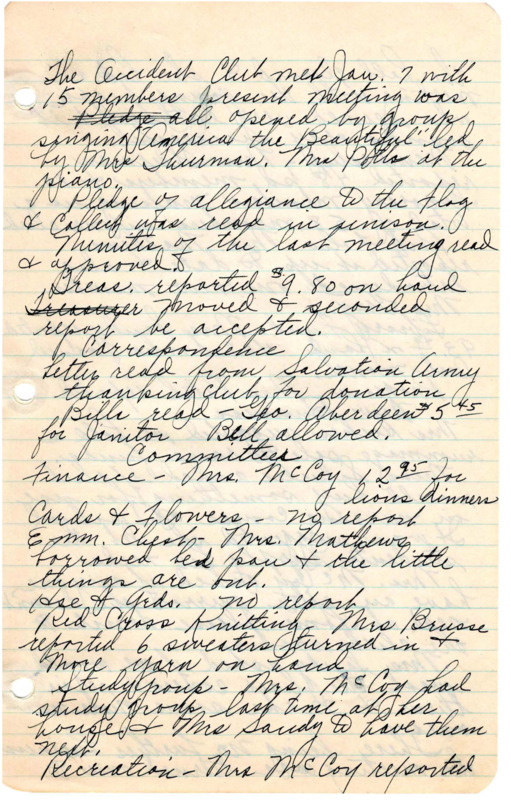 The Occident Club met Jan. 7 with
15 members present meeting was
Pledge all opened by group
singing "America the Beautiful" led
by Mrs Thurman. Mrs Potts at the
piano.
Pledge of allegiance to the flag
& Collect was read in unison.
Minutes of the last meeting read
& approved.
Treas. reported $9.80 on hand
Treasurer moved & seconded
report be accepted.
Correspondence
Letter read from Salvation Army
thanking club for donation
Bills read - Geo. Aberdeen $5 45
for Janitor Bill allowed.
Committies
Finance - Mrs. McCoy 12 95 for
lions dinners
Cards & Flowers - no report
Comm. Chest - Mrs. Mathews
borrowed bed pan & the little
things are out.
Hse & Grds. no report
Red Cross Knitting. Mrs Brusse
reported 6 sweaters turned in &
more yarn on hand
Study Group - Mrs. McCoy had
study group last time at her
house & Mrs Sandy to have them
next.
Recreation - Mrs McCoy reported